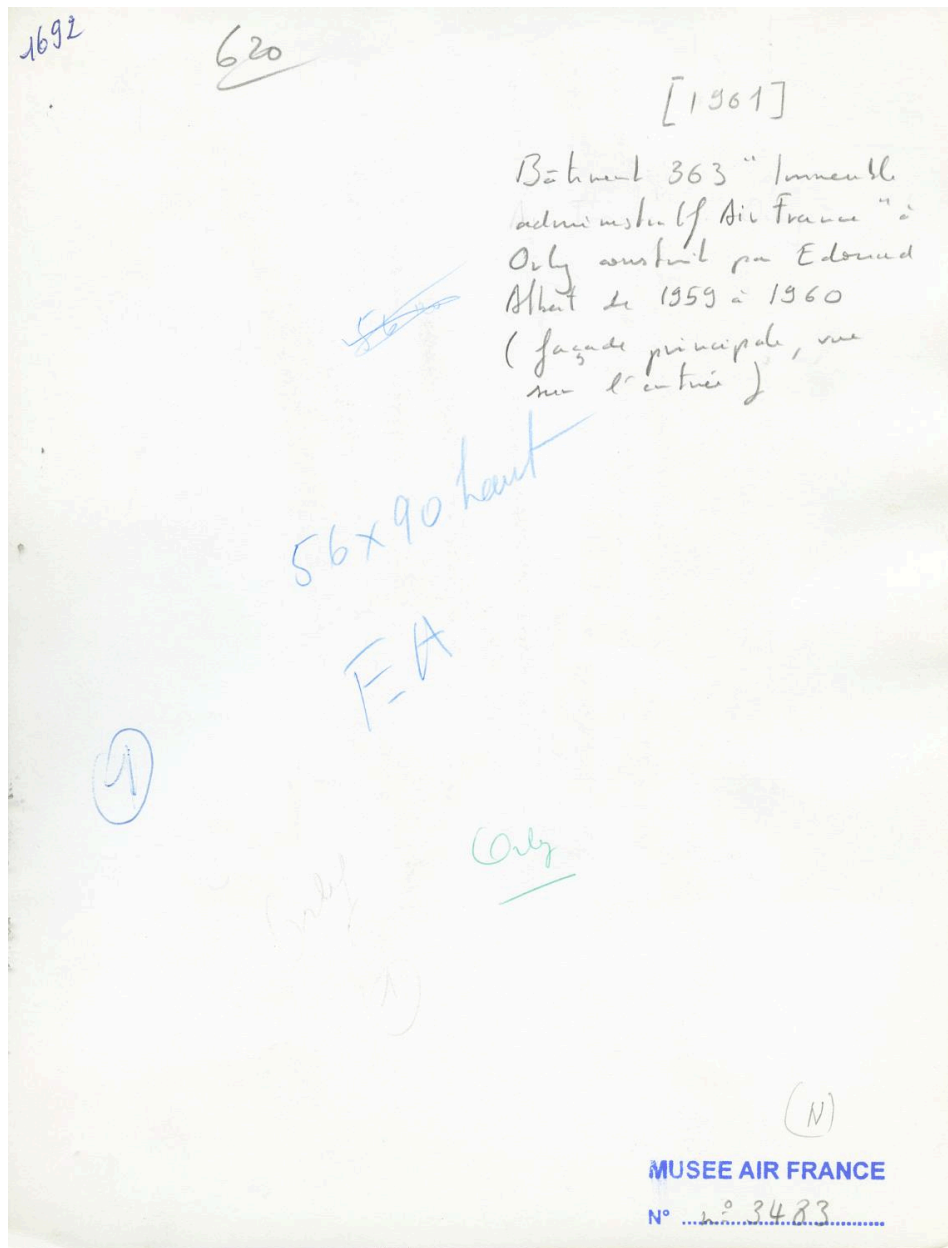 1692
620
[1961]
Bâtiment 363 "Immeuble
administratif Air France" à
Orly construit par Edouard
Albert de 1959 à 1960
(façade principale, vue
sur l'entrée)
56x90 haut
EA
1
Orly
Orly
1)
(N)
MUSEE AIR FRANCE
N° n° 3483